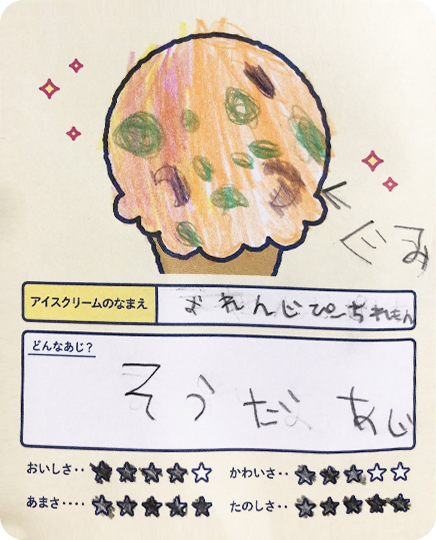 ぐみ
アイスクリームのなまえ おれんじぴーちれもん
どんなあじ？
そうだ あじ
おいしさ‥ ★★★★☆ かわいさ‥ ★★★☆☆
あまさ‥‥ ★★★★★ たのしさ‥ ★★★★★